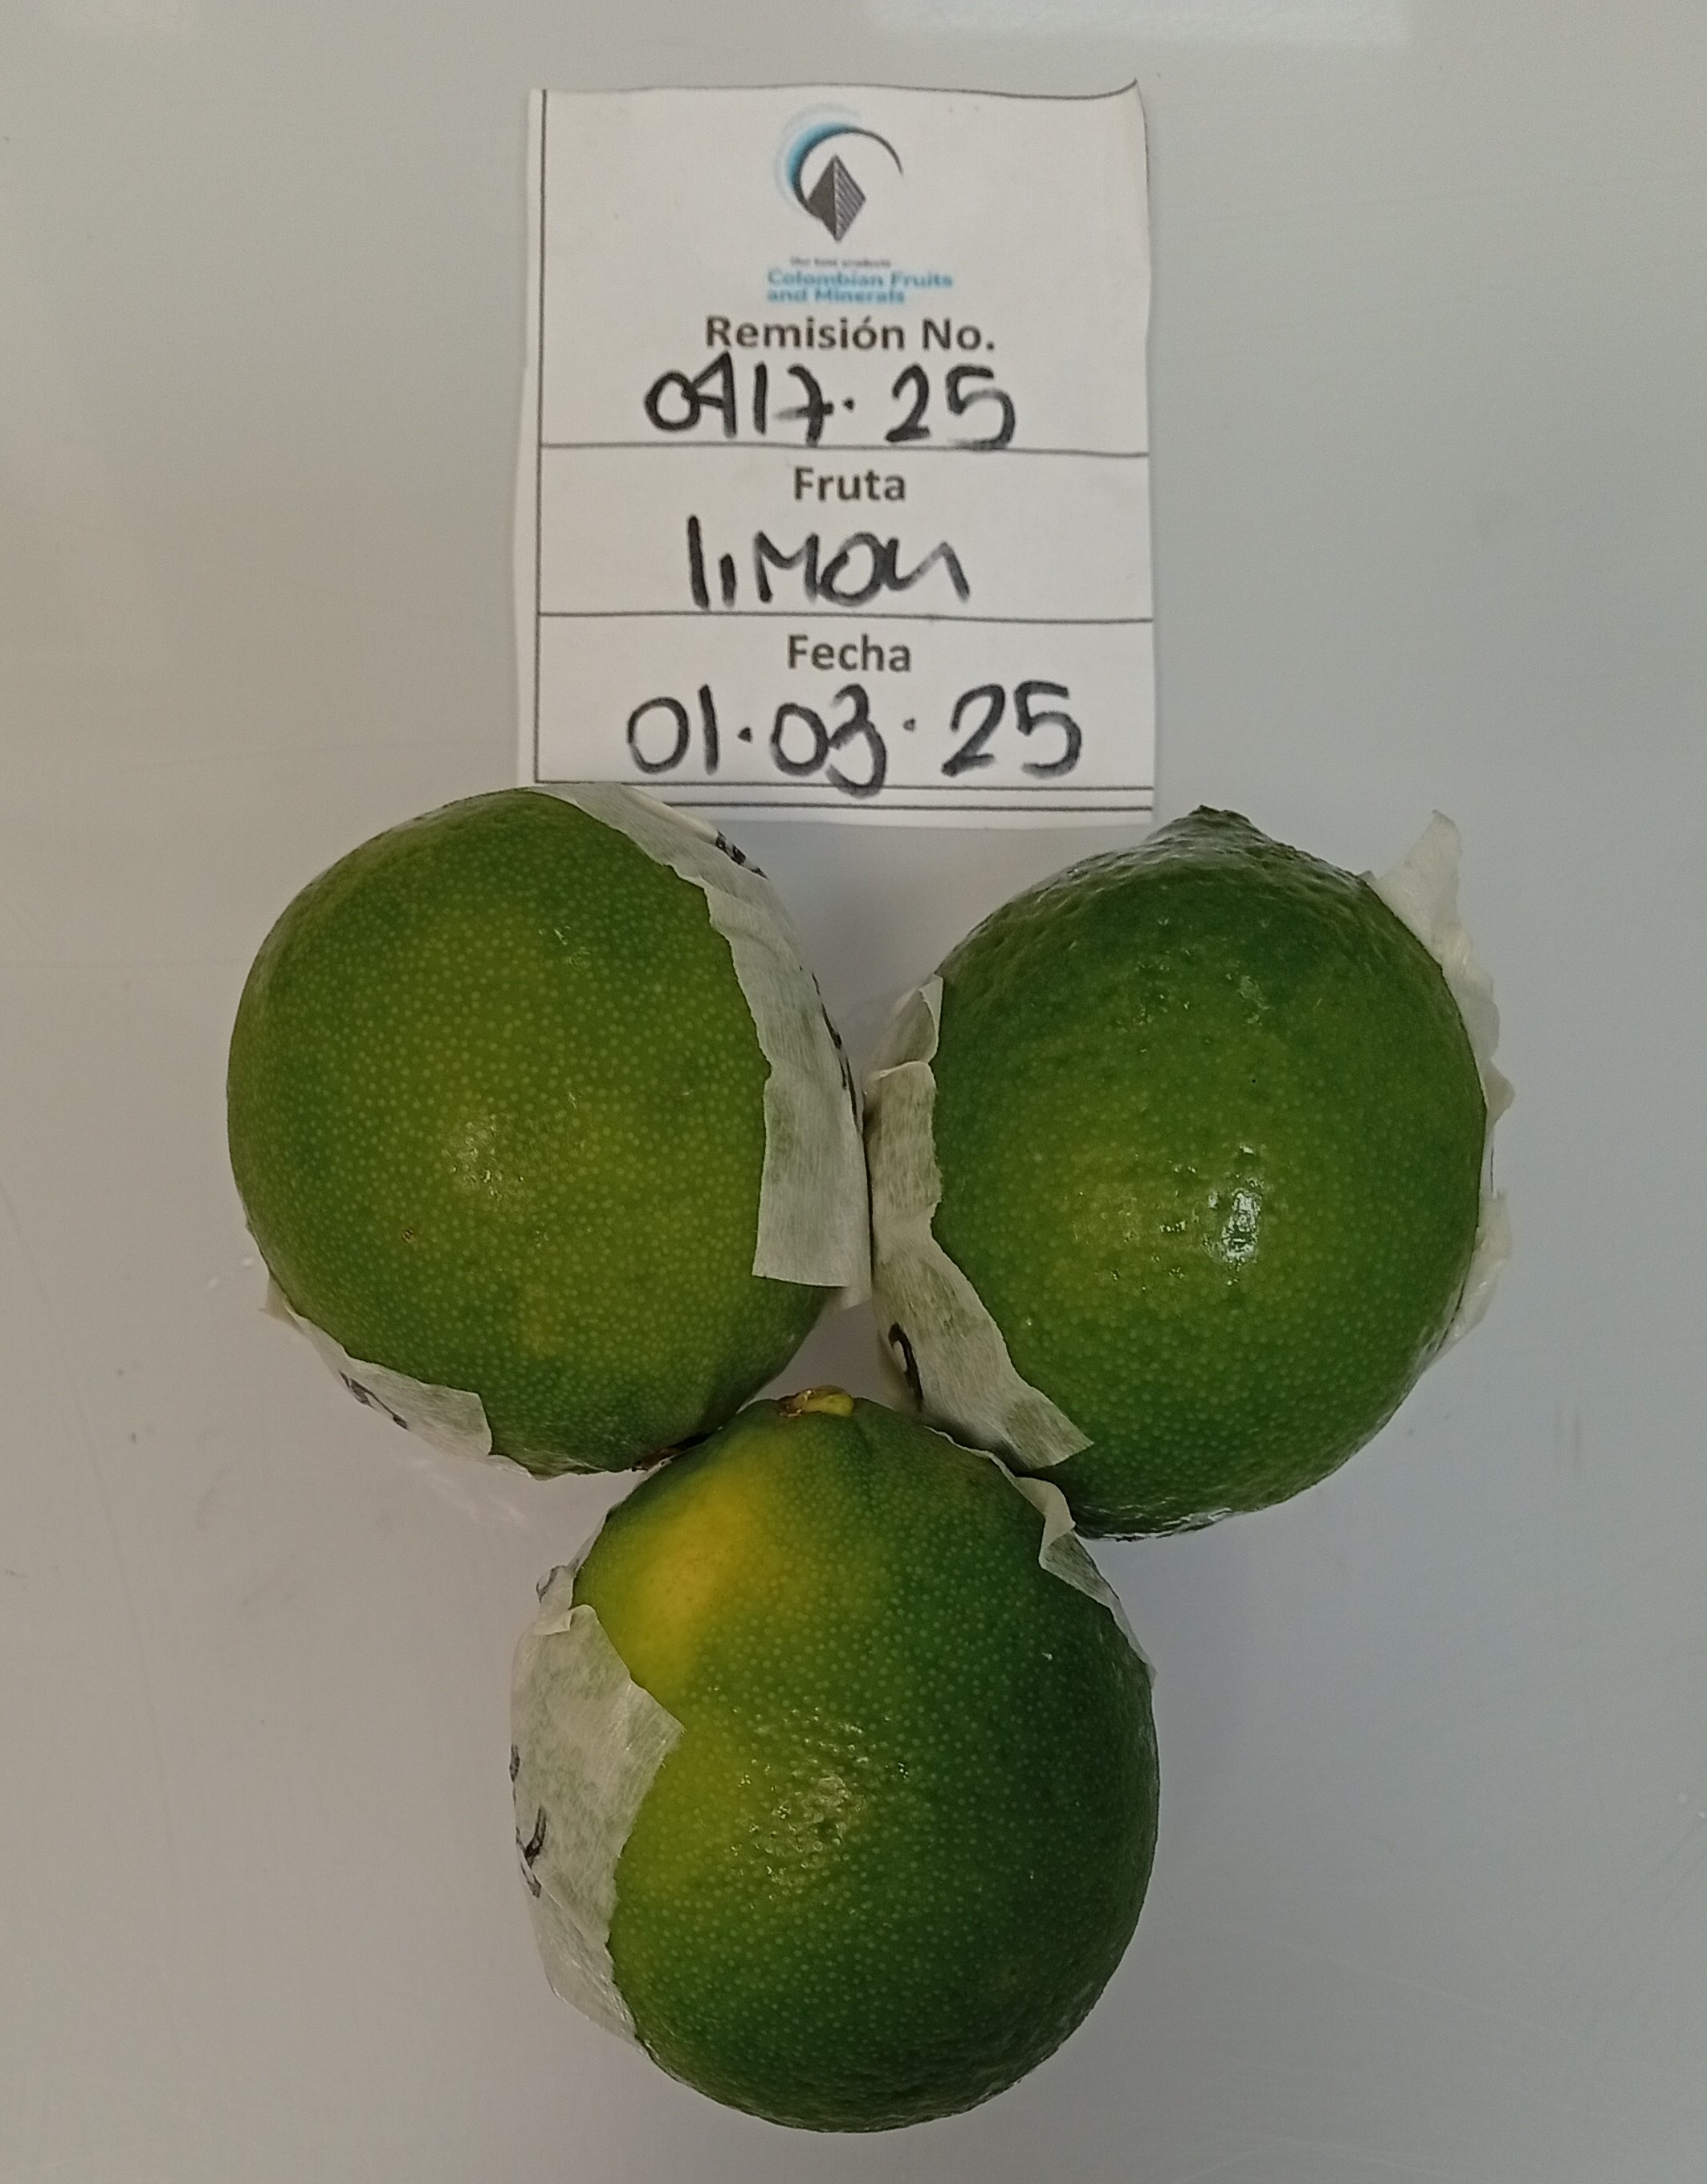 Colombian Fruits
and Minerals
Remisión No.
0417.25
Fruta
limon
Fecha
01.03.25